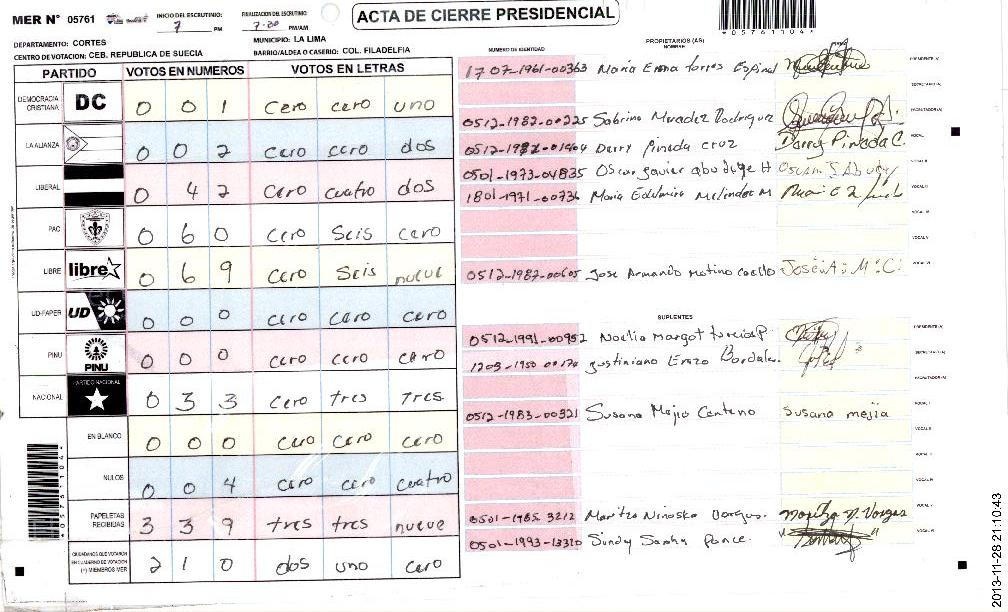 MER N° 05761
INICIO DEL ESCRUTINIO: 7 PM
FINALIZACION DEL ESCRUTINIO: 7-30 PM/AM
ACTA DE CIERRE PRESIDENCIAL
*05761104*
DEPARTAMENTO: CORTES
MUNICIPIO: LA LIMA
CENTRO DE VOTACION: CEB. REPUBLICA DE SUECIA
BARRIO/ALDEA O CASERIO: COL. FILADELFIA
PARTIDO VOTOS EN NUMEROS VOTOS EN LETRAS
DEMOCRACIA CRISTIANA DC 0 0 1 cero cero uno
LA ALIANZA 0 0 2 cero cero dos
LIBERAL 0 4 2 cero cuatro dos
PAC 0 6 0 cero seis cero
LIBRE libre 0 6 9 cero seis nueve
UD-FAPER UD 0 0 0 cero cero cero
PINU PINU 0 0 0 cero cero cero
NACIONAL PARTIDO NACIONAL 0 3 3 cero tres tres
EN BLANCO 0 0 0 cero cero cero
NULOS 0 0 4 cero cero cuatro
PAPELETAS RECIBIDAS 3 3 9 tres tres nueve
CIUDADANOS QUE VOTARON EN CUADERNO DE VOTACION (+) MIEMBROS MER 2 1 0 dos uno cero
*05761104*
NUMERO DE IDENTIDAD
PROPIETARIOS (AS)
NOMBRE
1707-1961-00363 Maria Emma torres Espinal PRESIDENTE (A)
SECRETARIO (A)
0512-1982-00225 Sabrina Rodriguez ESCRUTADOR (A)
Darry Pineda cruz Darry Pineda C. VOCAL I
0501-1973-04835 Oscar Javier H VOCAL II
1801-1971-00736 Maria VOCAL III
VOCAL IV
VOCAL V
0512-1987-00605 Jose Armando José A. M. C. VOCAL VI
SUPLENTES
0512-1991-00952 Noelia Margot PRESIDENTE (A)
Justiniano Erazo SECRETARIO (A)
ESCRUTADOR (A)
0512-1983-00321 Susana Mejia Centeno Susana mejia VOCAL I
VOCAL II
VOCAL III
VOCAL IV
0501-1985 3212 Maritza Ninoska Vargas. Maritza N. Vargas VOCAL V
0501-1993-13310 Sindy Ponce. VOCAL VI
2013-11-28 21:10:43